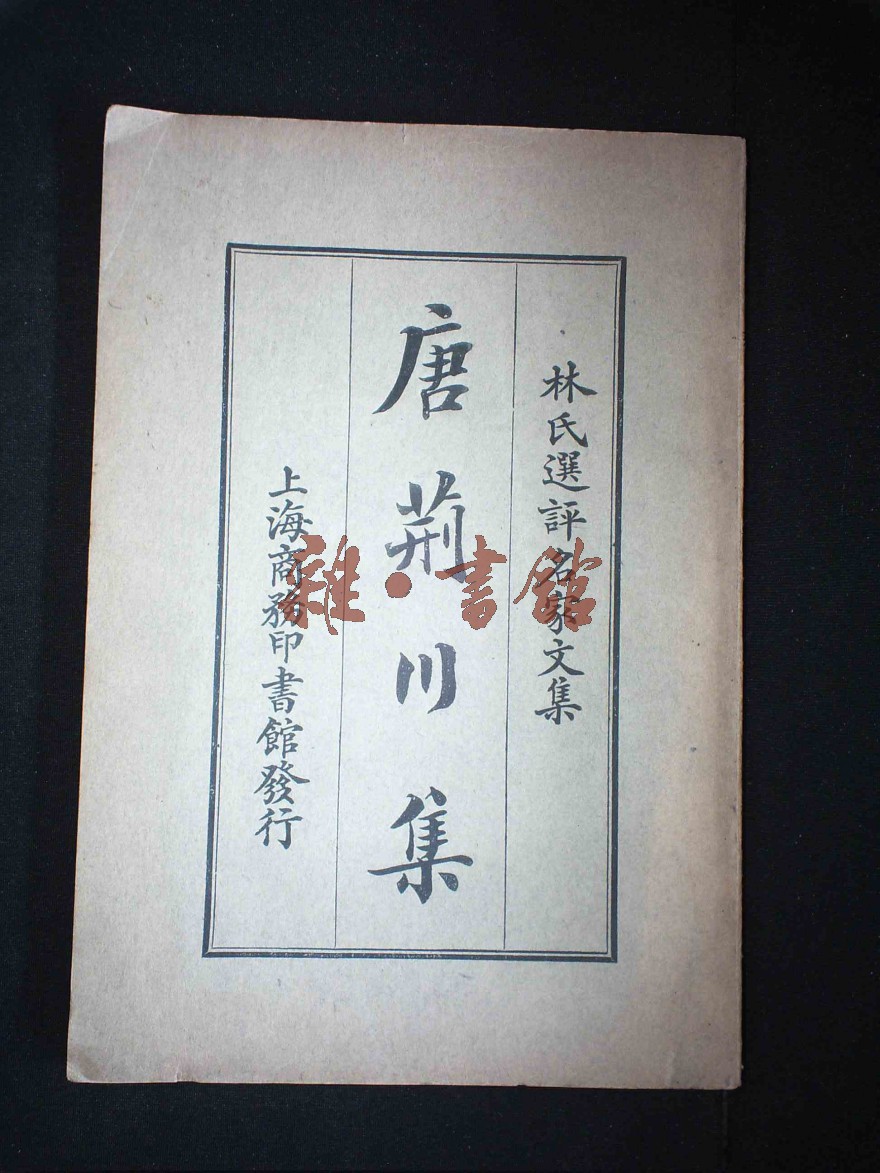 林氏選評名家文集
唐荊川集
上海商務印書館發行
雜·書館